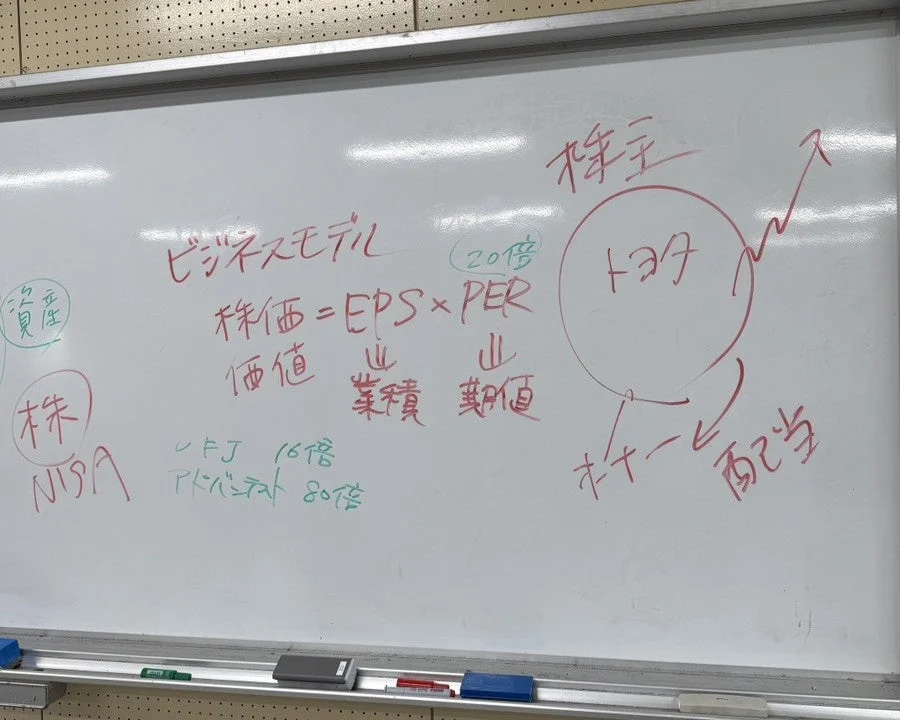 資産
株
NISA
ビジネスモデル
20倍
株価 = EPS × PER
価値
業積
期値
UFJ 16倍
アドバンテスト 80倍
株主
トヨタ
オーナー
配当